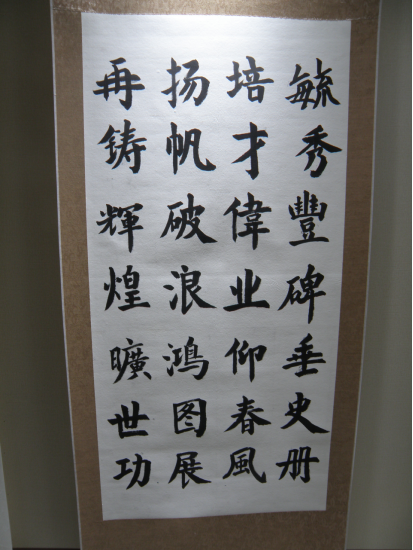 毓秀豐碑垂史册
培才偉业仰春風
扬帆破浪鸿图展
再铸輝煌曠世功